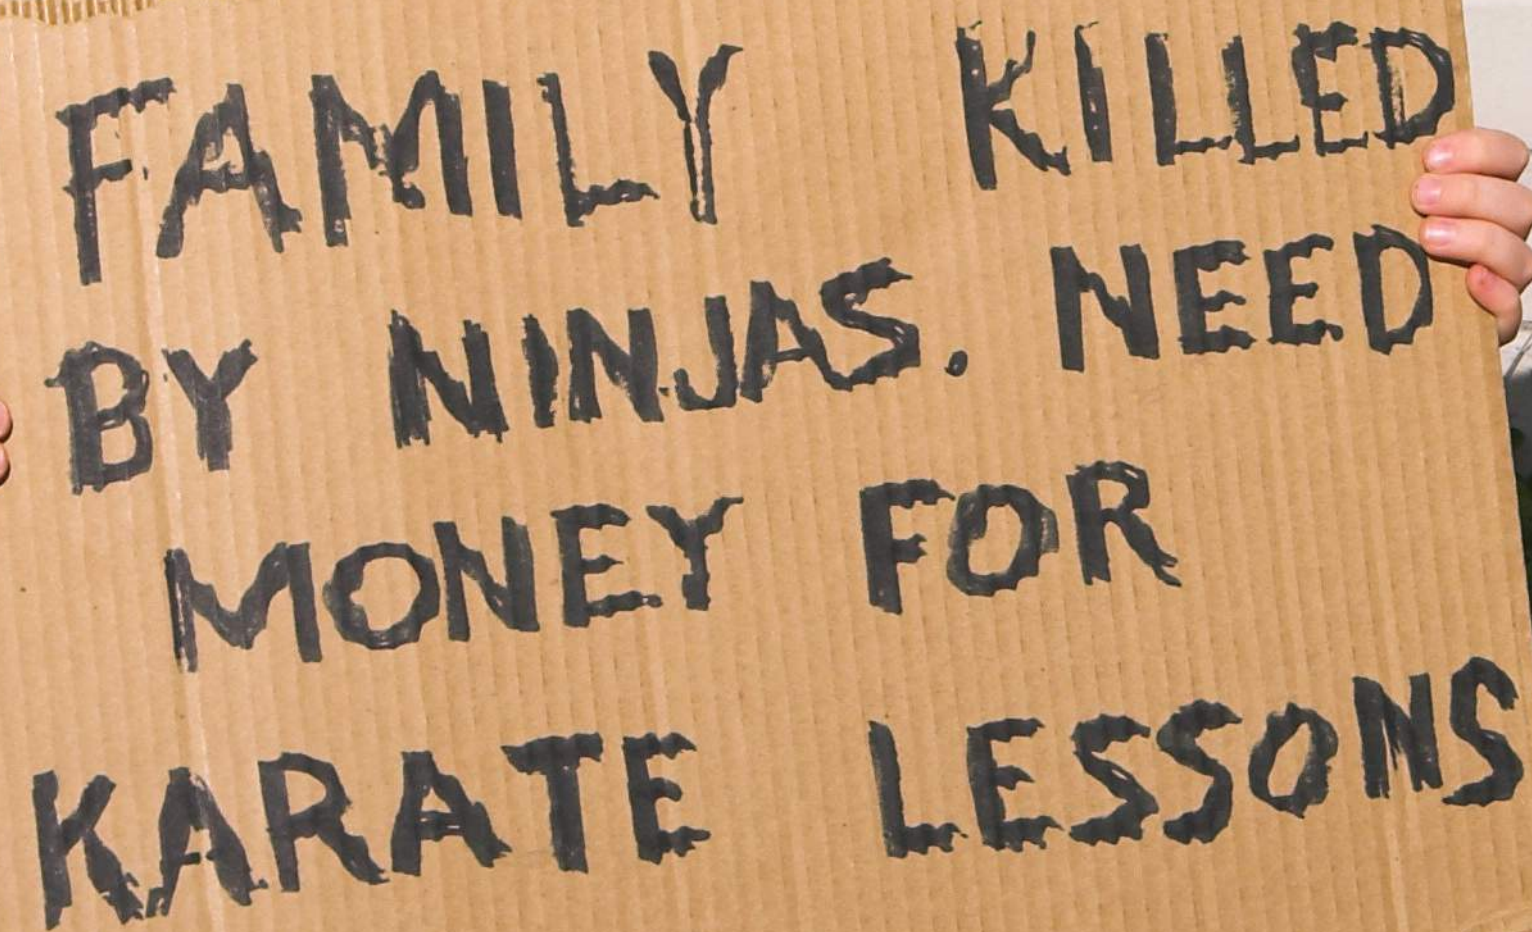 FAMILY KILLED
BY NINJAS. NEED
MONEY FOR
KARATE LESSONS